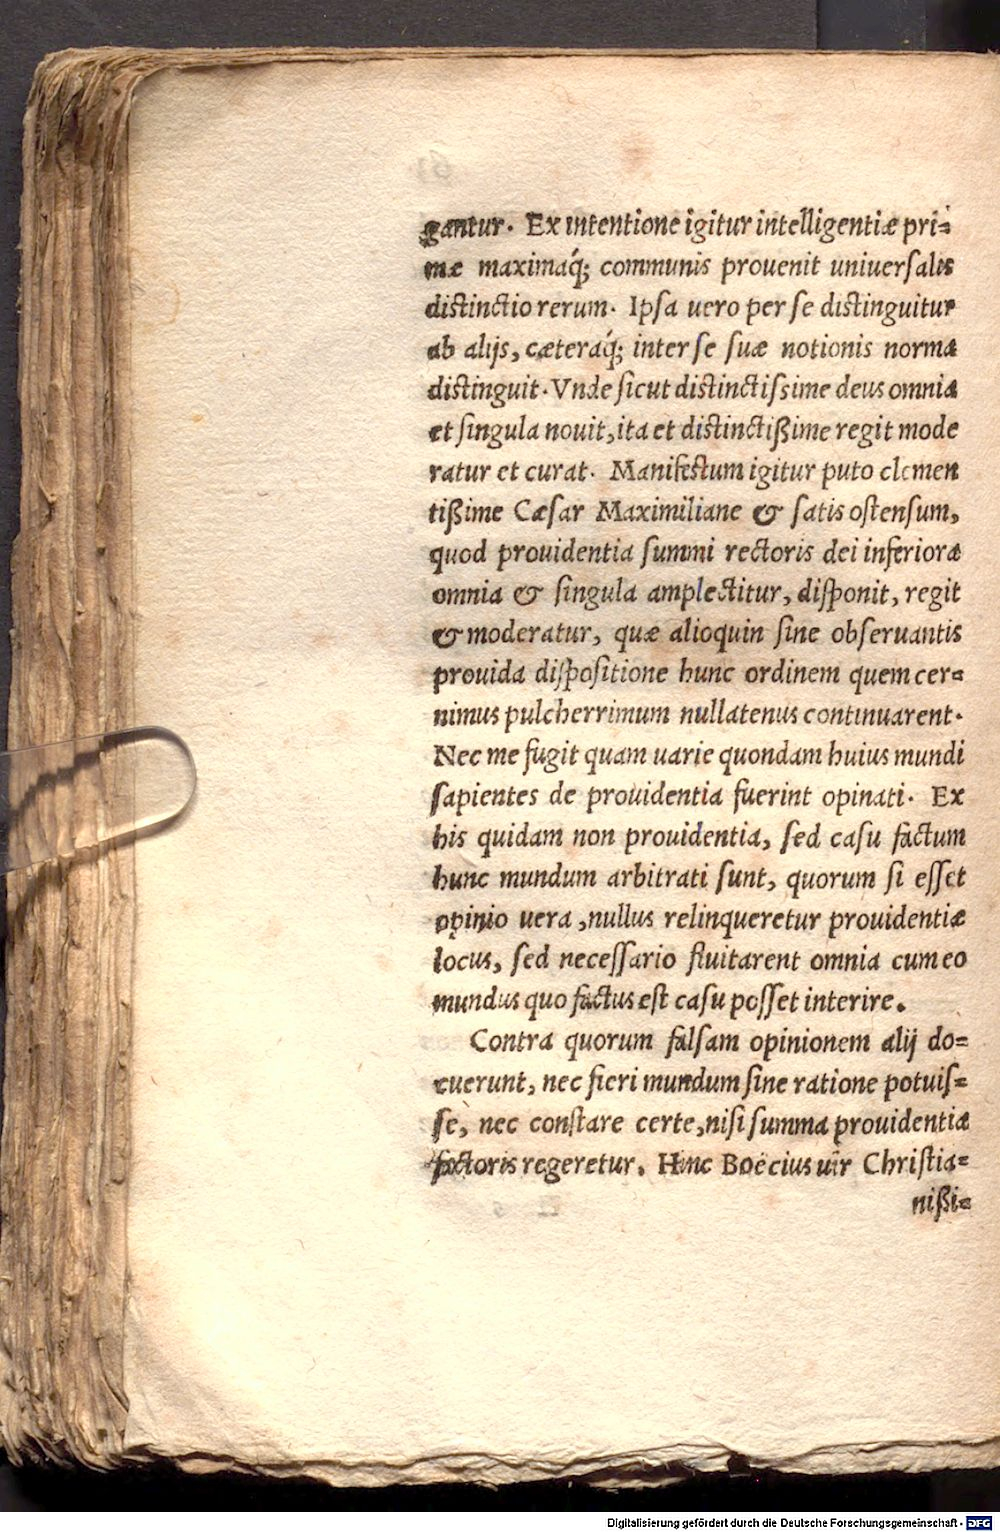 gantur. Ex intentione igitur intelligentiæ pri=
mæ maximaq́; communis prouenit uniuersalis
distinctio rerum. Ipsa uero per se distinguitur
ab alijs, cæteraq́; inter se suæ notionis norma
distinguit. Vnde sicut distinctissime deus omnia
et singula nouit, ita et distinctißime regit mode
ratur et curat. Manifestum igitur puto clemen
tißime Cæsar Maximiliane & satis ostensum,
quod prouidentia summi rectoris dei inferiora
omnia & singula amplectitur, disponit, regit
& moderatur, quæ alioquin sine obseruantis
prouida dispositione hunc ordinem quem cer=
nimus pulcherrimum nullatenus continuarent.
Nec me fugit quam uarie quondam huius mundi
sapientes de prouidentia fuerint opinati. Ex
his quidam non prouidentia, sed casu factum
hunc mundum arbitrati sunt, quorum si esset
opinio uera, nullus relinqueretur prouidentiæ
locus, sed necessario fluitarent omnia cum eo
mundus quo factus est casu posset interire.
Contra quorum falsam opinionem alij do=
cuerunt, nec fieri mundum sine ratione potuis=
se, nec constare certe, nisi summa prouidentia
factoris regeretur. Hinc Boëcius uir Christia=
nißi=
Digitalisierung gefördert durch die Deutsche Forschungsgemeinschaft - DFG